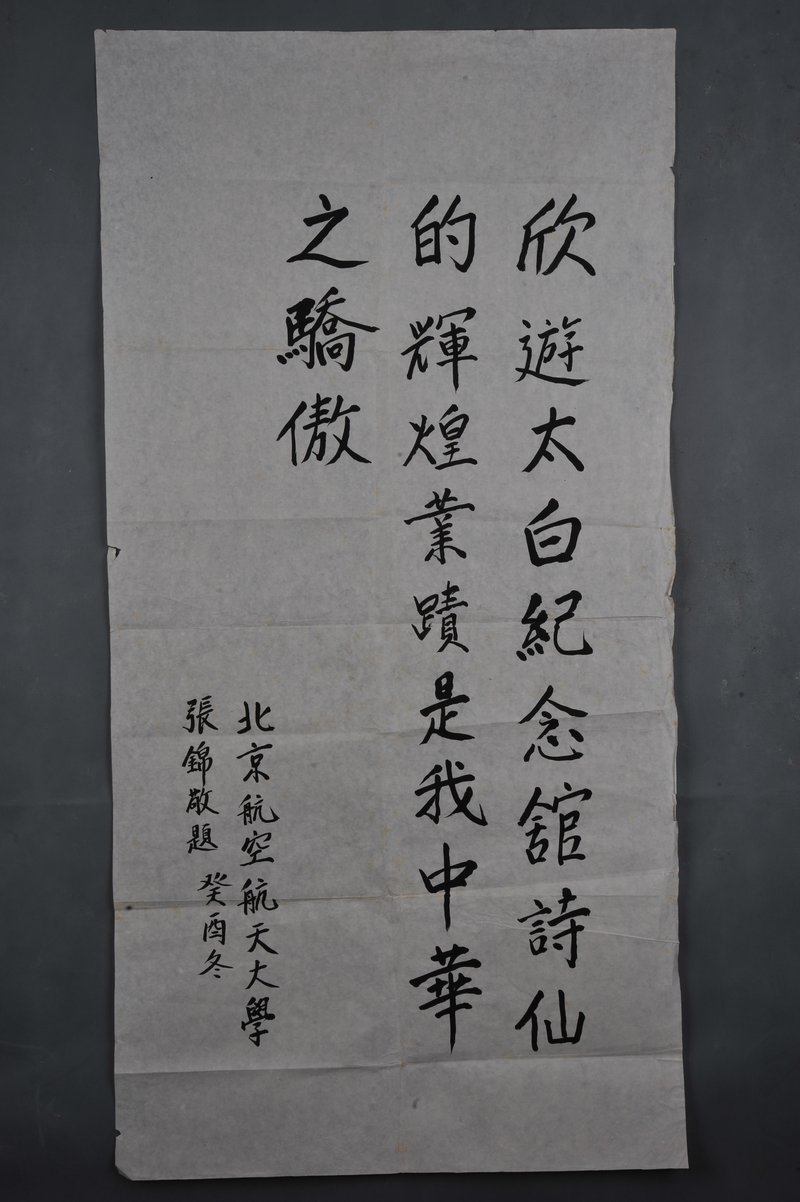 欣遊太白紀念舘詩仙
的輝煌業蹟是我中華
之驕傲
北京航空航天大學
張錦敬題 癸酉冬